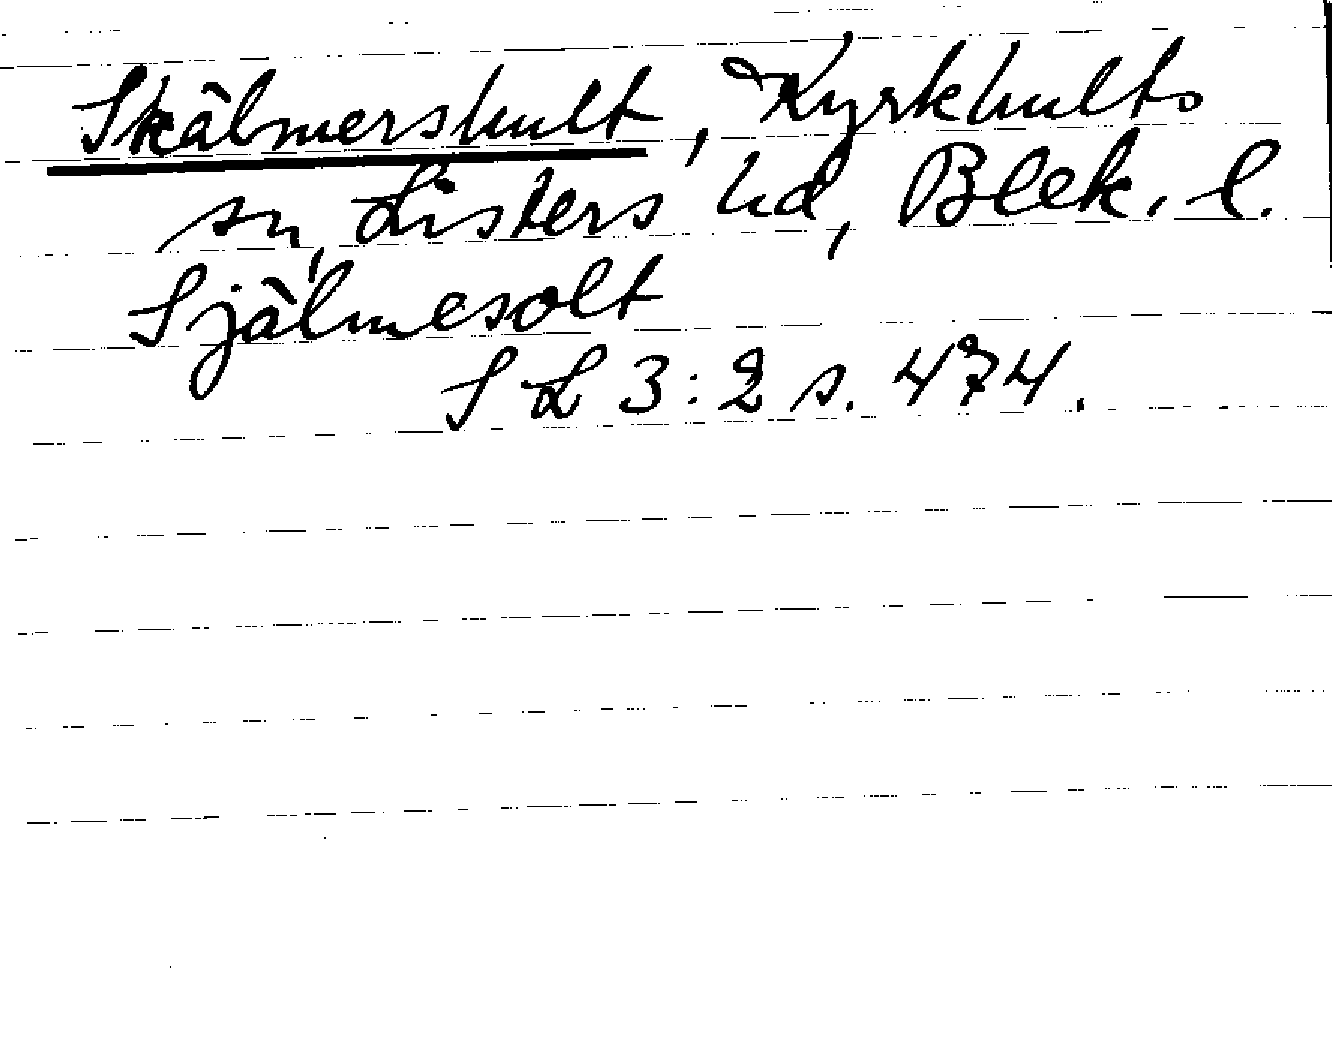 Skälmershult, Kyrkhults
sn, Listers hd, Blek. l.
Själmesolt
SL 3:2 s. 474.